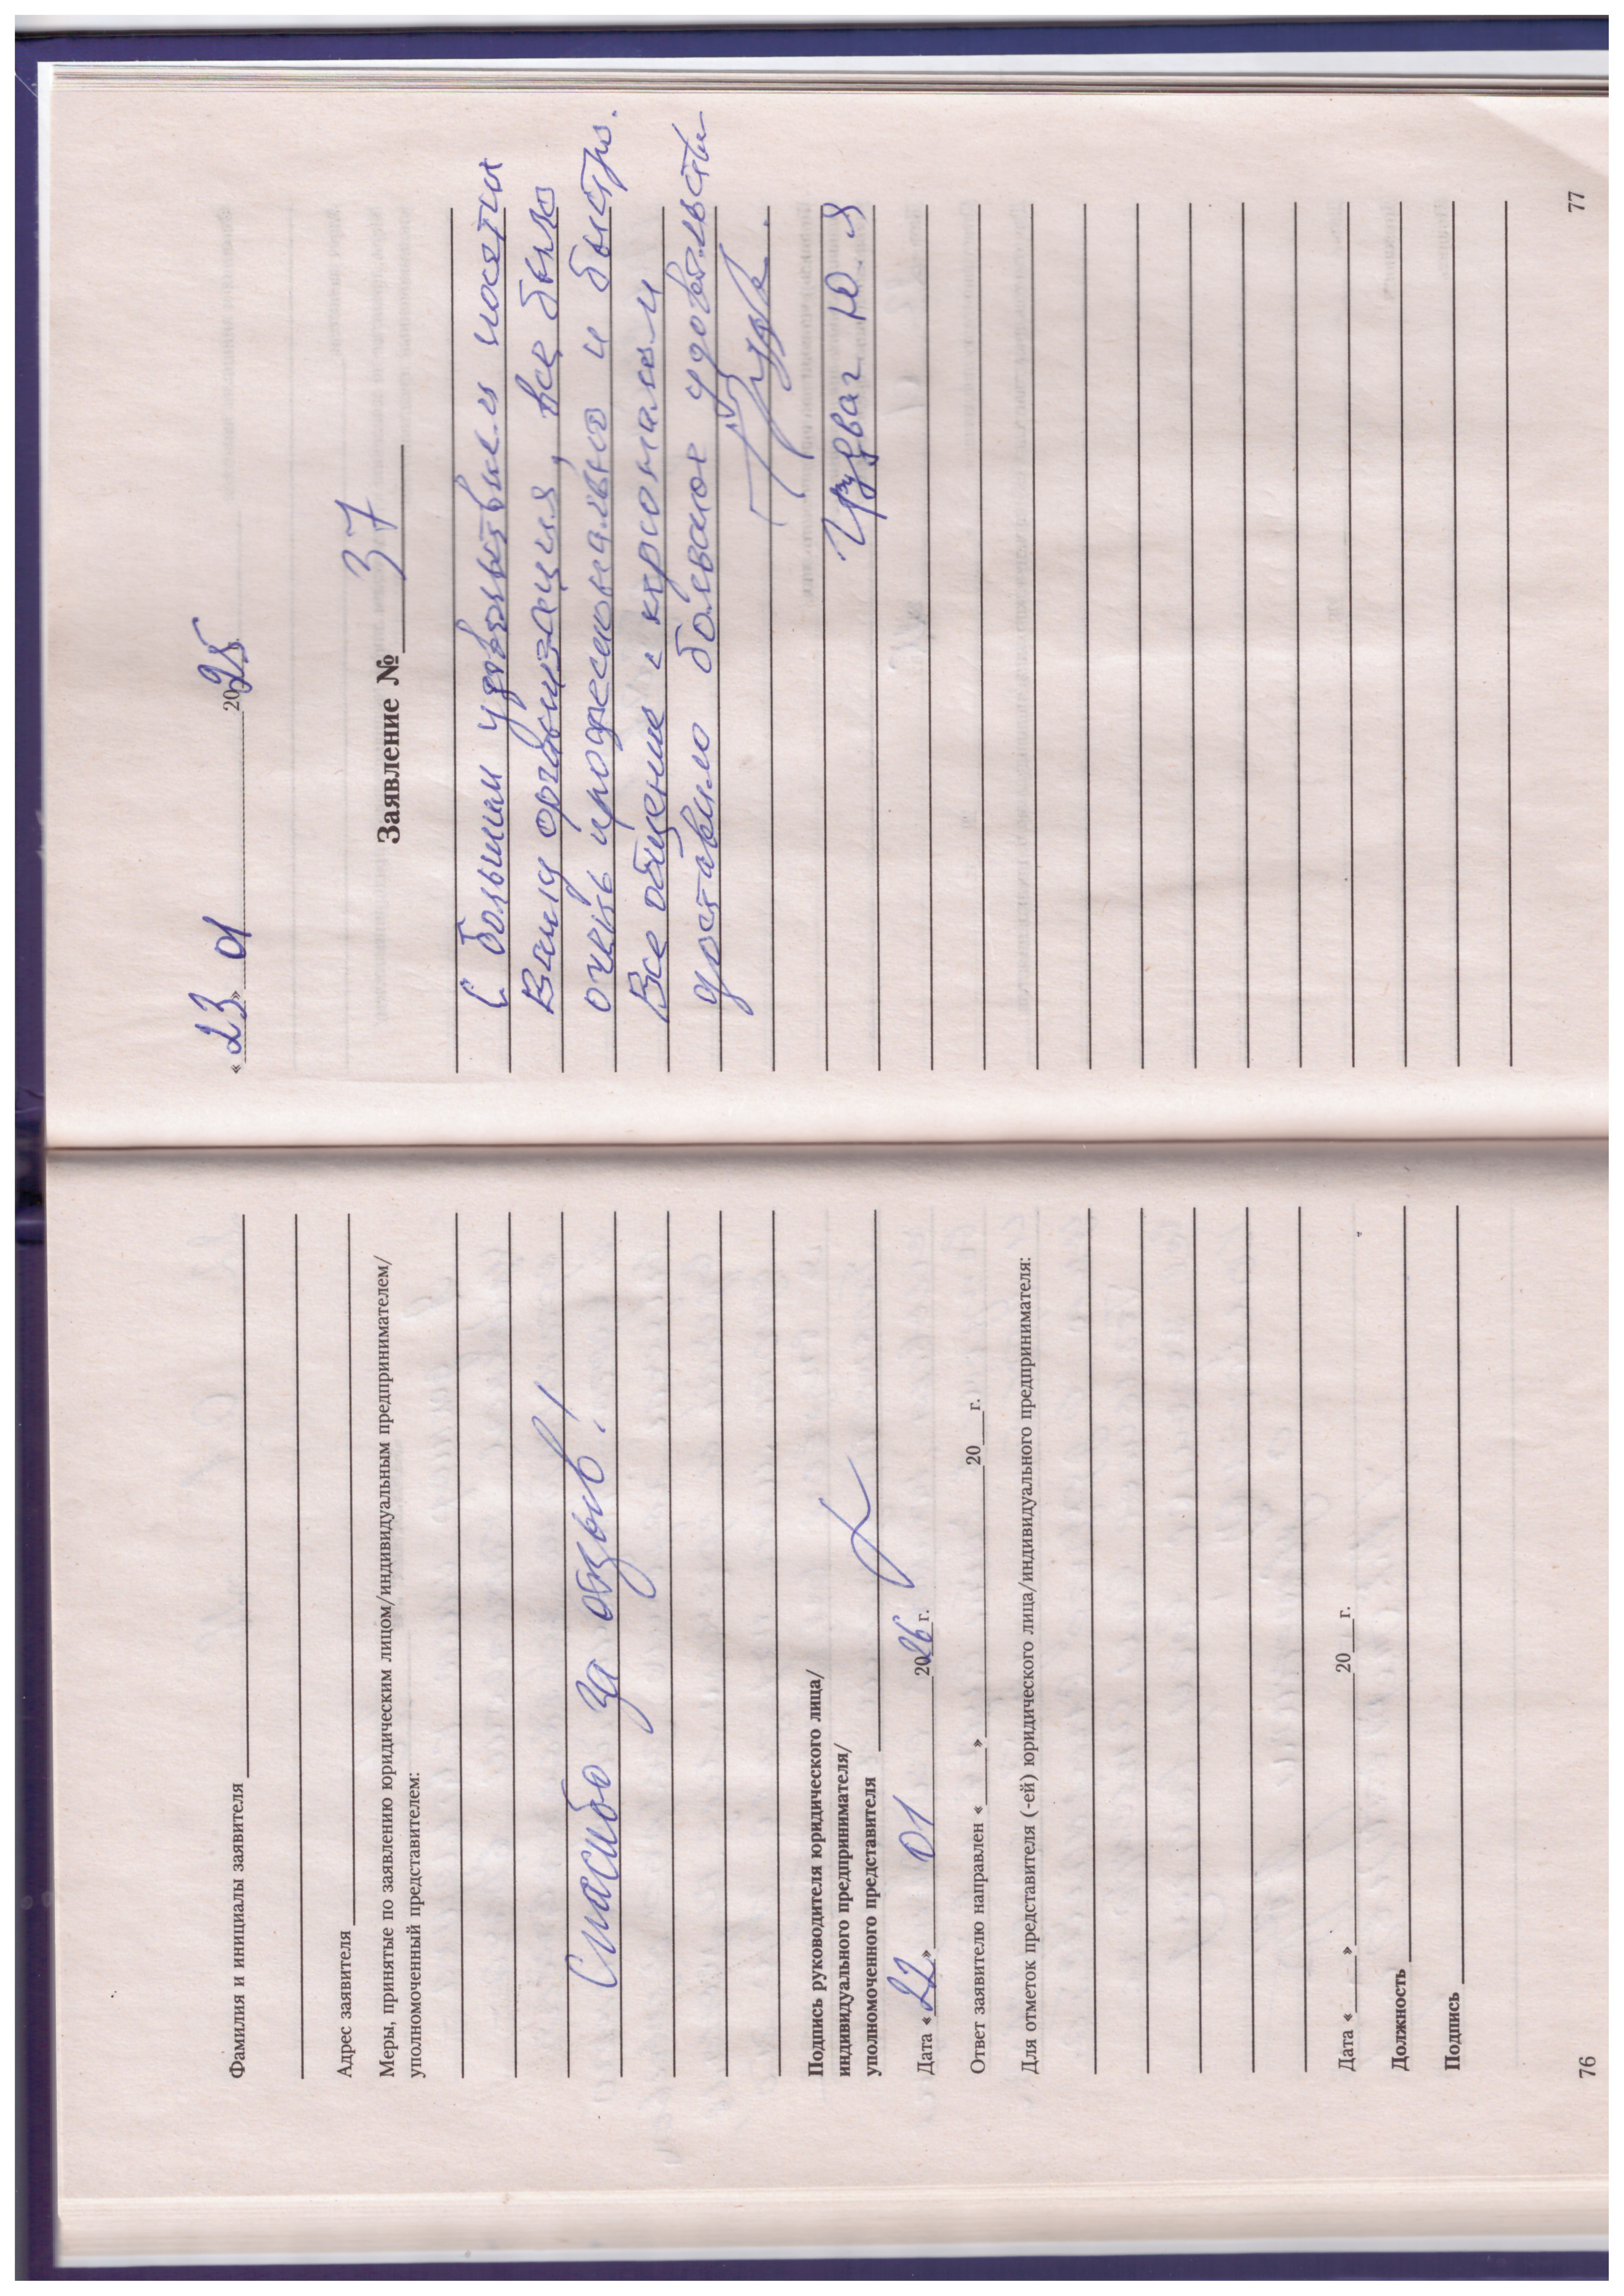 Фамилия и инициалы заявителя
Адрес заявителя
Меры, принятые по заявлению юридическим лицом/индивидуальным предпринимателем/
уполномоченный представителем:
Спасибо за отзыв!
Подпись руководителя юридического лица/
индивидуального предпринимателя/
уполномоченного представителя
Дата «22» 01 2026 г.
Ответ заявителю направлен «___» 20__ г.
Для отметок представителя (-ей) юридического лица/индивидуального предпринимателя:
Дата «___» 20__ г.
Должность
Подпись
76
«23» 01 2025
Заявление № 37
С большим удовольствием посетил
Вашу организация, все было
очень професионально и быстро.
Все общение с персоналом
доставило большое удовольстви
Ю. Я
77